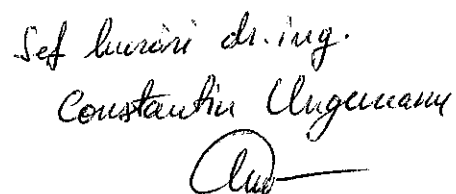 Șef lucrări dr. ing.
Constantin Ungureanu